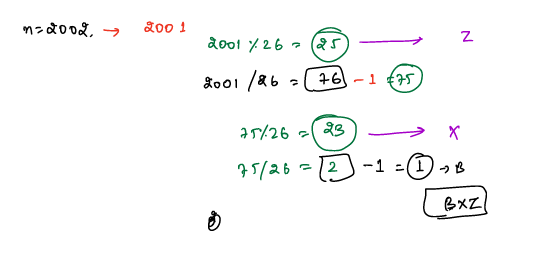 n=2002. → 2001
2001 % 26 = 25 → Z
2001 / 26 = 76 - 1 = 75
75 % 26 = 23 → X
75 / 26 = 2 - 1 = 1 → B
BXZ